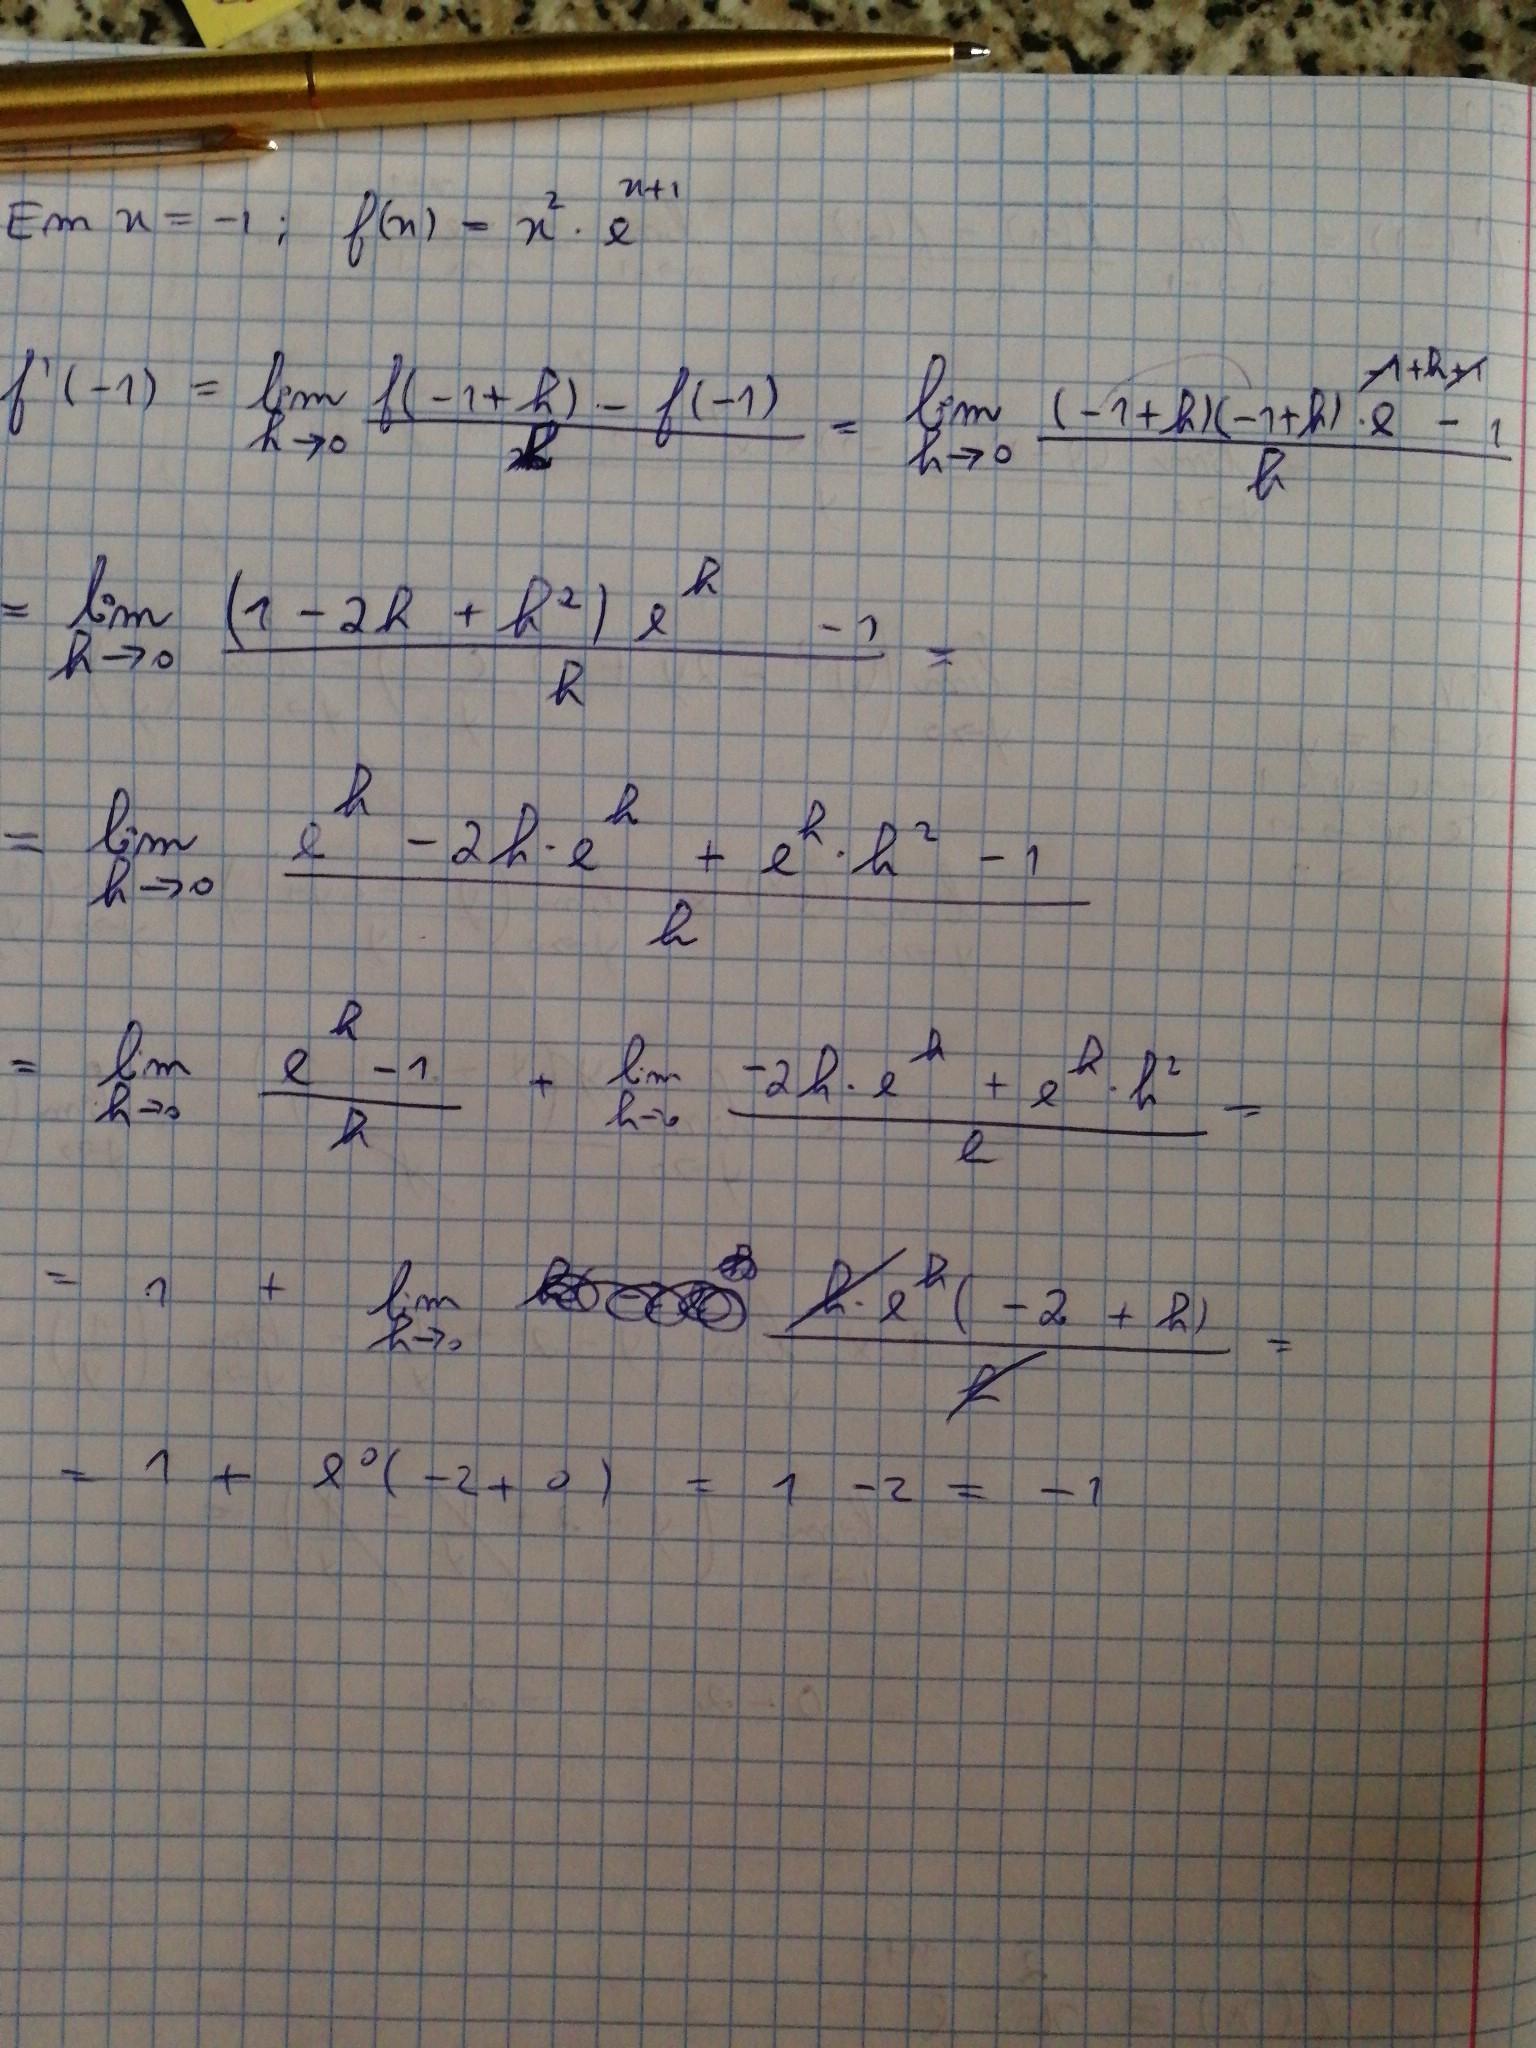 Em x = -1; f(x) = x² · e^(x+1)
f'(-1) = lim h→0 (f(-1+h) - f(-1))/h = lim h→0 ((-1+h)(-1+h) · e^(-1+h+1) - 1)/h
= lim h→0 ((1 - 2h + h²) e^h - 1)/h =
= lim h→0 (e^h - 2h · e^h + e^h · h² - 1)/h
= lim h→0 (e^h - 1)/h + lim h→0 (-2h · e^h + e^h · h²)/e =
= 1 + lim h→0 (h · e^h (-2 + h))/h =
= 1 + e^0 (-2 + 0) = 1 - 2 = -1